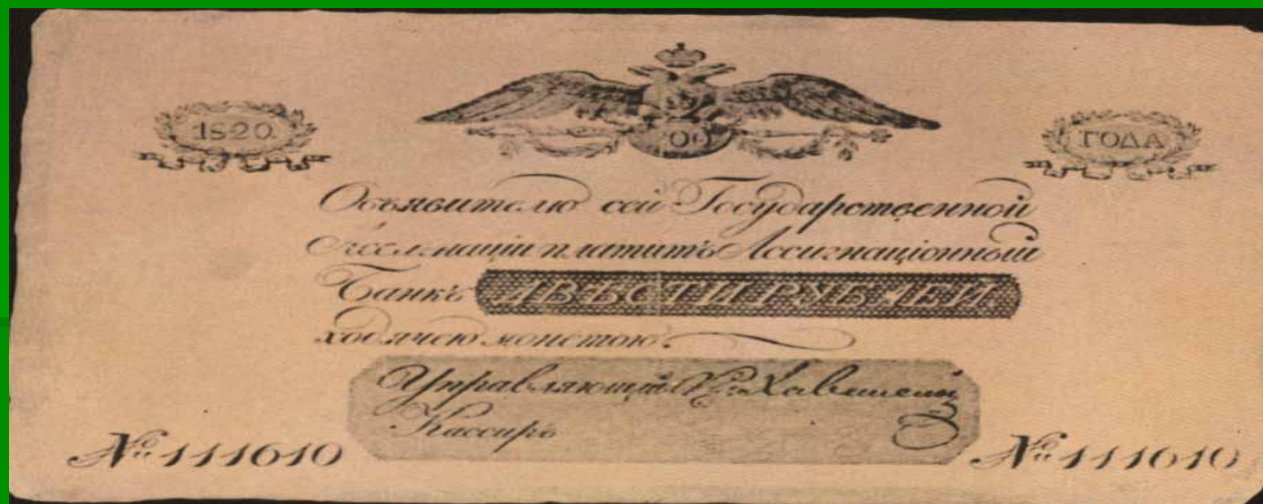 1820.
ГОДА
Объявителю сей Государственной
Ассигнаціи платитъ Ассигнаціонный
Банкъ ДВѢСТИ РУБЛЕЙ
ходячею монетою.
Управляющий
Кассиръ
№ 111610 № 111610